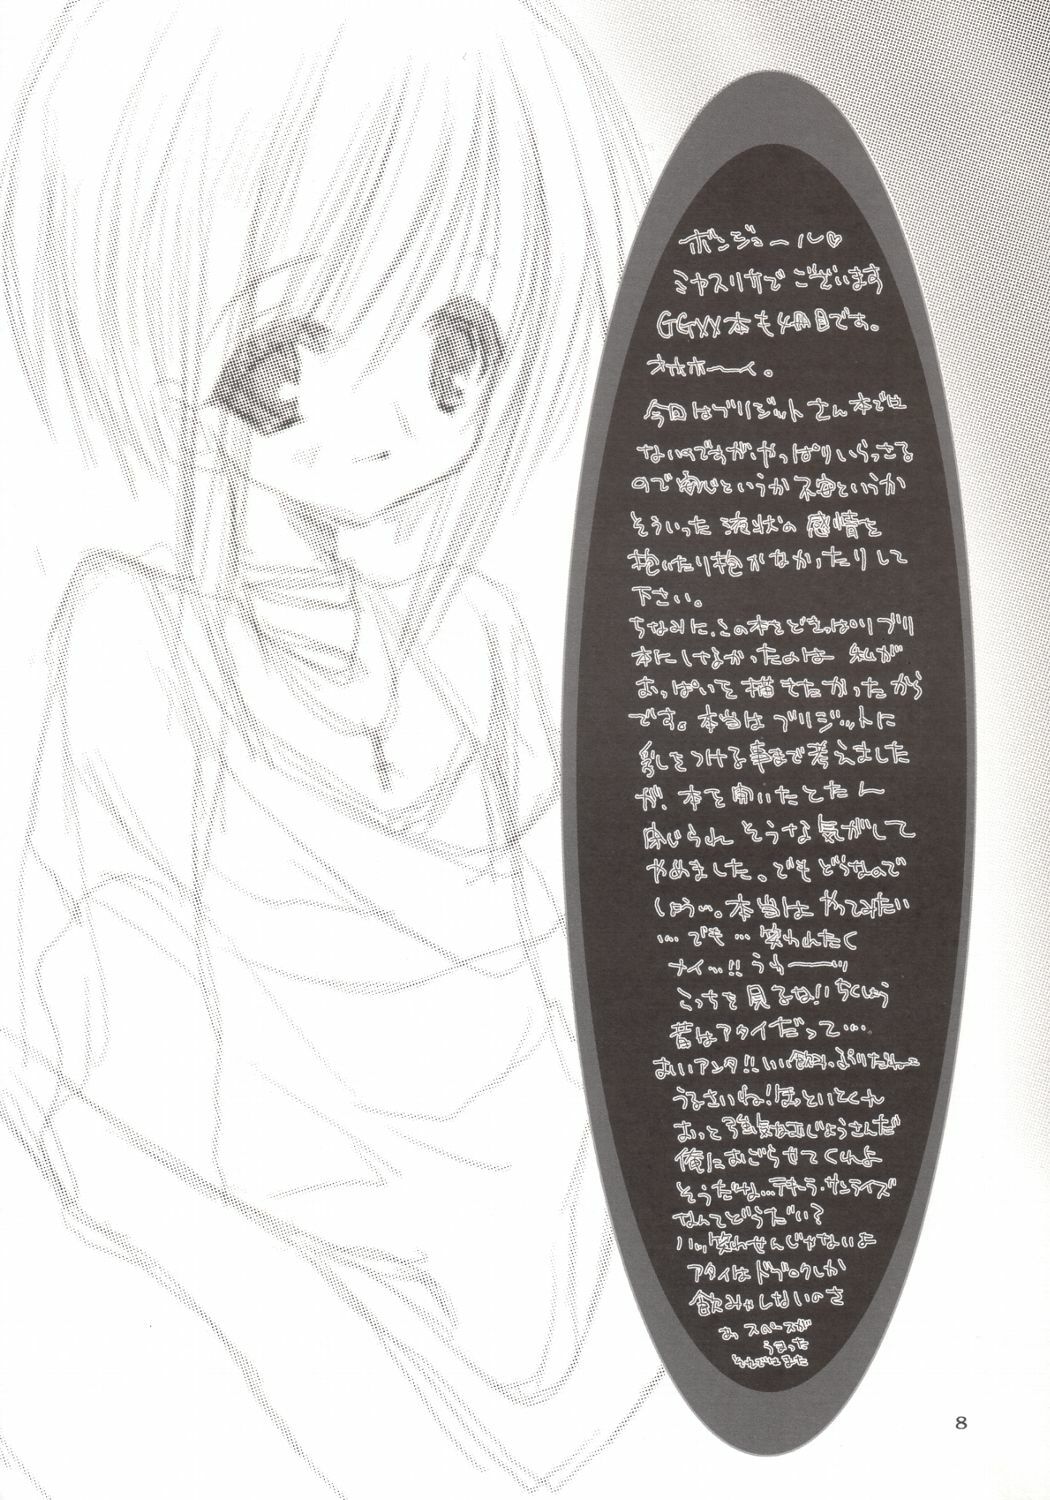 ボンジュール♡
ミヤスリサでございます
GGXX本も4冊目です。
オホホーイ。
今回はブリジットさん本では
ないのですが、やっぱりいらっさる
ので安心というか不安というか
そういった液状の感情を
抱いたり抱かなかったりして
下さい。
ちなみに、この本をどきっぱりブリ
本にしなかったのは 私が
おっぱいを描きたかったから
です。本当はブリジットに
乳をつける事まで考えました
が、本を開いたとたん
閉じられそうな気がして
やめました。でもどうなので
しょうか。本当はやってみたい
…でも…笑われたく
ナイッ!!うわーーッ
こっちを見るね!!ちくしょう
昔はアタイだって…。
おいアンタ!!いい飲みっぷりだねェ
うるさいね!ほっといとくれ
おっと強気なおじょうさんだ
俺におごらせてくれよ
そうだな…テキーラ・サンライズ
なんてどうだい?
ハッ、笑わせんじゃないよ
アタイはドブロクしか
飲みゃしないのさ
あ スペースが
うまった
それではまた
8